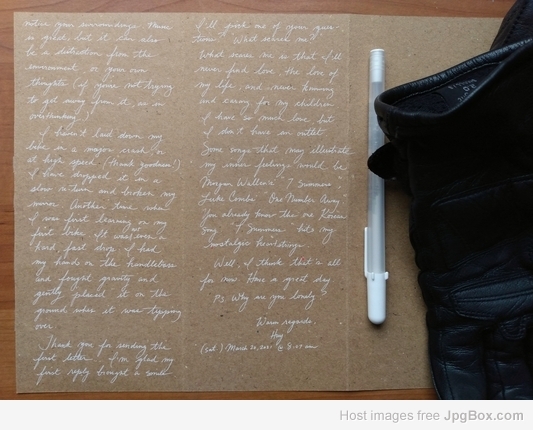 notice your surroundings. Music
is good, but it can also
be a distraction from the
environment, or your own
thoughts (if you're not trying
to get away from it, as in
overthinking.)
I haven't laid down my
bike in a major crash or
at high speed. (thank goodness!)
I have dropped it in a
slow return and broken my
mirror. Another time when
I was first learning on my
first bike. It was
hard, fast drop. I had
my hands on the handlebars
and fought gravity and
gently placed it on the
ground when it was tipping
over.
Thank you for sending the
first letter. I'm glad my
first reply brought a smile
I'll pick one of your ques-
tions. "What scares me?"
What scares me is that I'll
never find love, the love of
my life, and never knowing
and caring for my children
I have so much love but
I don't have an outlet.
Some songs that may illustrate
my inner feelings would be
Morgan Wallen's "7 Summers"
Luke Combs' "One Number Away."
You already know the one
song. "7 Summers" hits my
nostalgic heartstrings.
Well, I think that's all
for now. Have a great day
P.S. Why are you lonely?
Warm regards,
(sat.) March 20, 2021 @
Host images free JpgBox.com